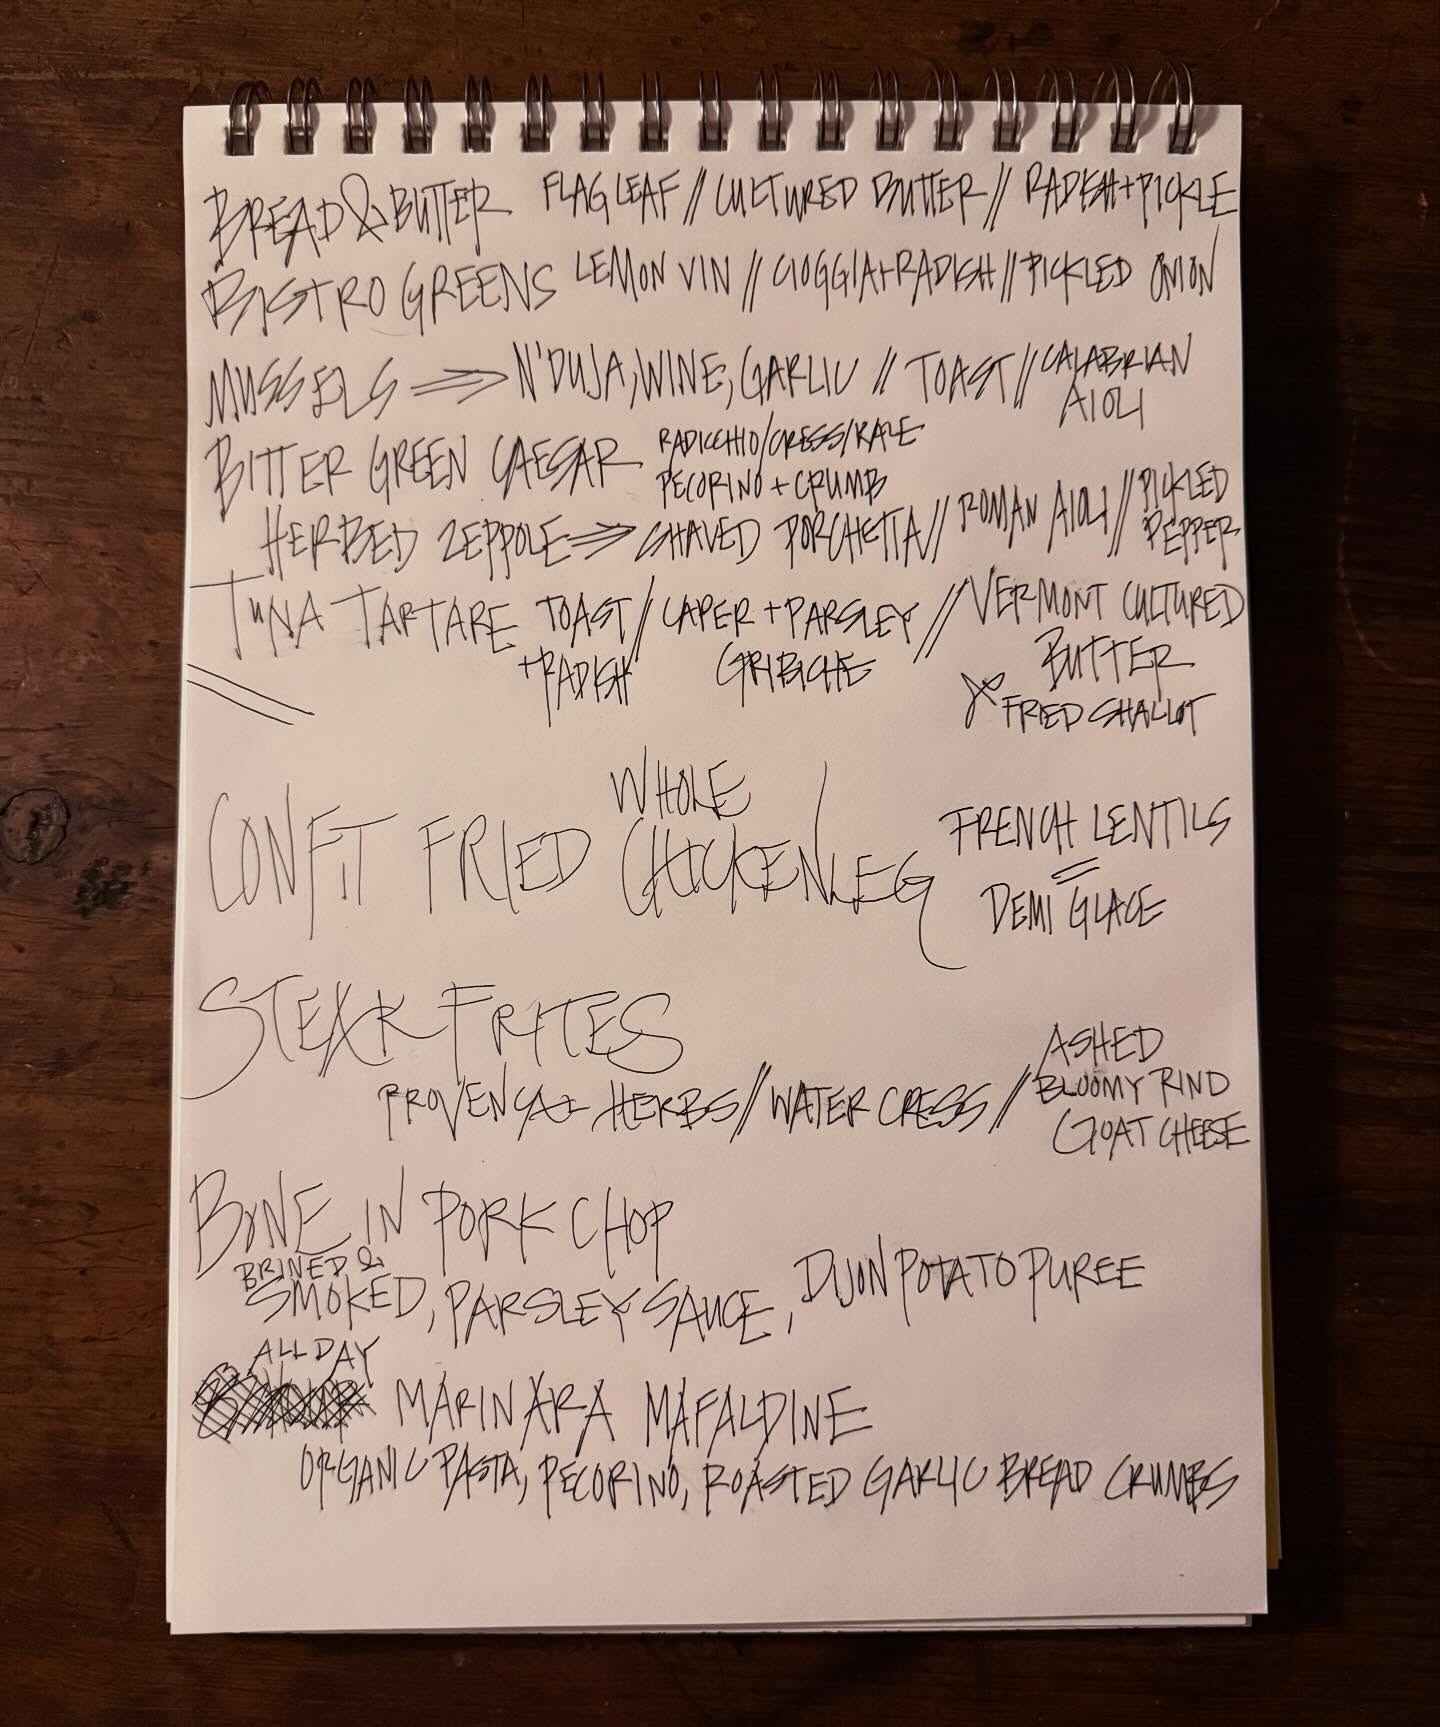 BREAD & BUTTER FLAG LEAF // CULTURED BUTTER // RADISH + PICKLE
BISTRO GREENS LEMON VIN // CIOGGIA + RADISH // PICKLED ONION
MUSSELS ⇒ N'DUJA, WINE, GARLIC // TOAST // CALABRIAN
AIOLI
BITTER GREEN CAESAR RADICCHIO/CRESS/KALE
PECORINO + CRUMB
HERBED ZEPPOLE ⇒ SHAVED PORCHETTA // ROMAN AIOLI // PICKLED
PEPPER
TUNA TARTARE TOAST / CAPER + PARSLEY // VERMONT CULTURED
+ RADISH GRIBICHE BUTTER
& FRIED SHALLOT
WHOLE
CONFIT FRIED CHICKEN LEG FRENCH LENTILS
=
DEMI GLACE
STEAK FRITES
PROVENÇAL HERBS // WATER CRESS // ASHED
BLOOMY RIND
GOAT CHEESE
BONE IN PORK CHOP
BRINED &
SMOKED, PARSLEY SAUCE, DIJON POTATO PUREE
ALL DAY
MARINARA MAFALDINE
ORGANIC PASTA, PECORINO, ROASTED GARLIC BREAD CRUMBS